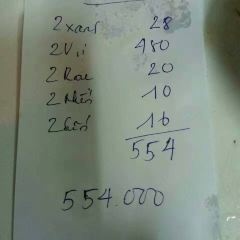 2 xanh 28
2 Vịt 480
2 Rau 20
2 10
2 16
554
554.000